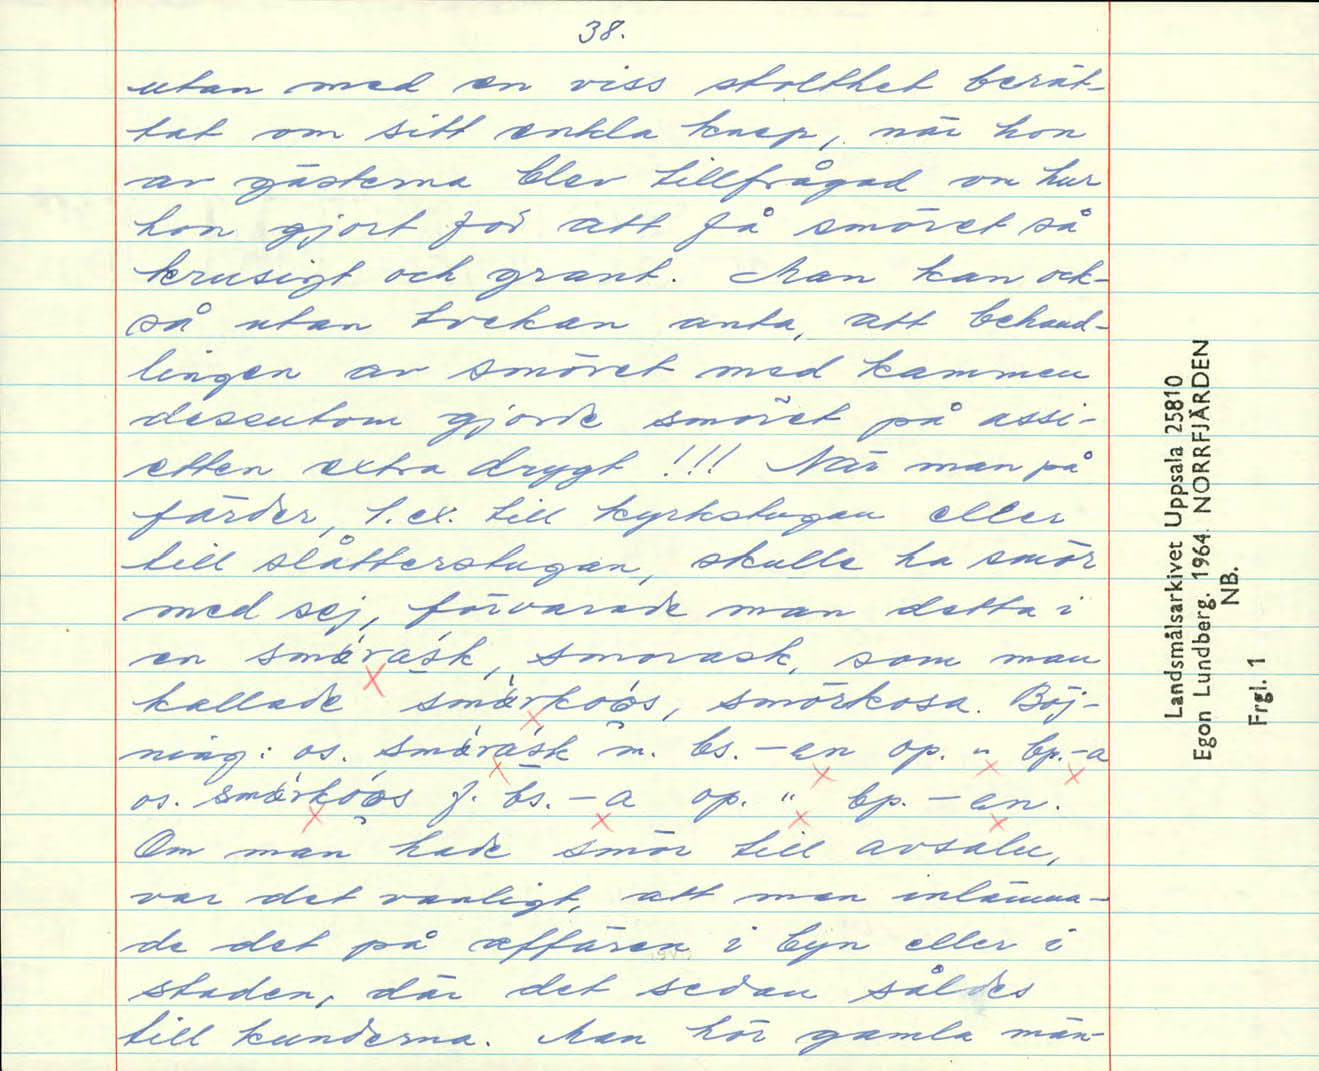 38.
utan med en viss stolthet berät-
tat om sitt enkla knep, när hon
av gästerna blev tillfrågad om hur
hon gjort för att få smöret så
krusigt och grant. Man kan ock-
så utan tvekan anta, att behand-
lingen av smöret med kammen
dessutom gjorde smöret på assi-
etten extra drygt!!! När man på
färder, t.ex. till kyrkstugan eller
till slåtterstugan, skulle ha smör
med sej, förvarade man detta i
en smǿrásk, smörask, som man
kallade smǿrkoós, smörkosa. Böj-
ning: os. smǿrásk m. bs. -en op. " bp. -a
os. smǿrkoós f. bs. -a op. " bp. -en.
Om man hade smör till avsalu,
var det vanligt, att man inlämna-
de det på affären i byn eller i
staden, där det sedan såldes
till kunderna. Man hör gamla män-
Landsmålsarkivet Uppsala 25810
Egon Lundberg. 1964. NORRFJÄRDEN
NB.
Frgl. 1